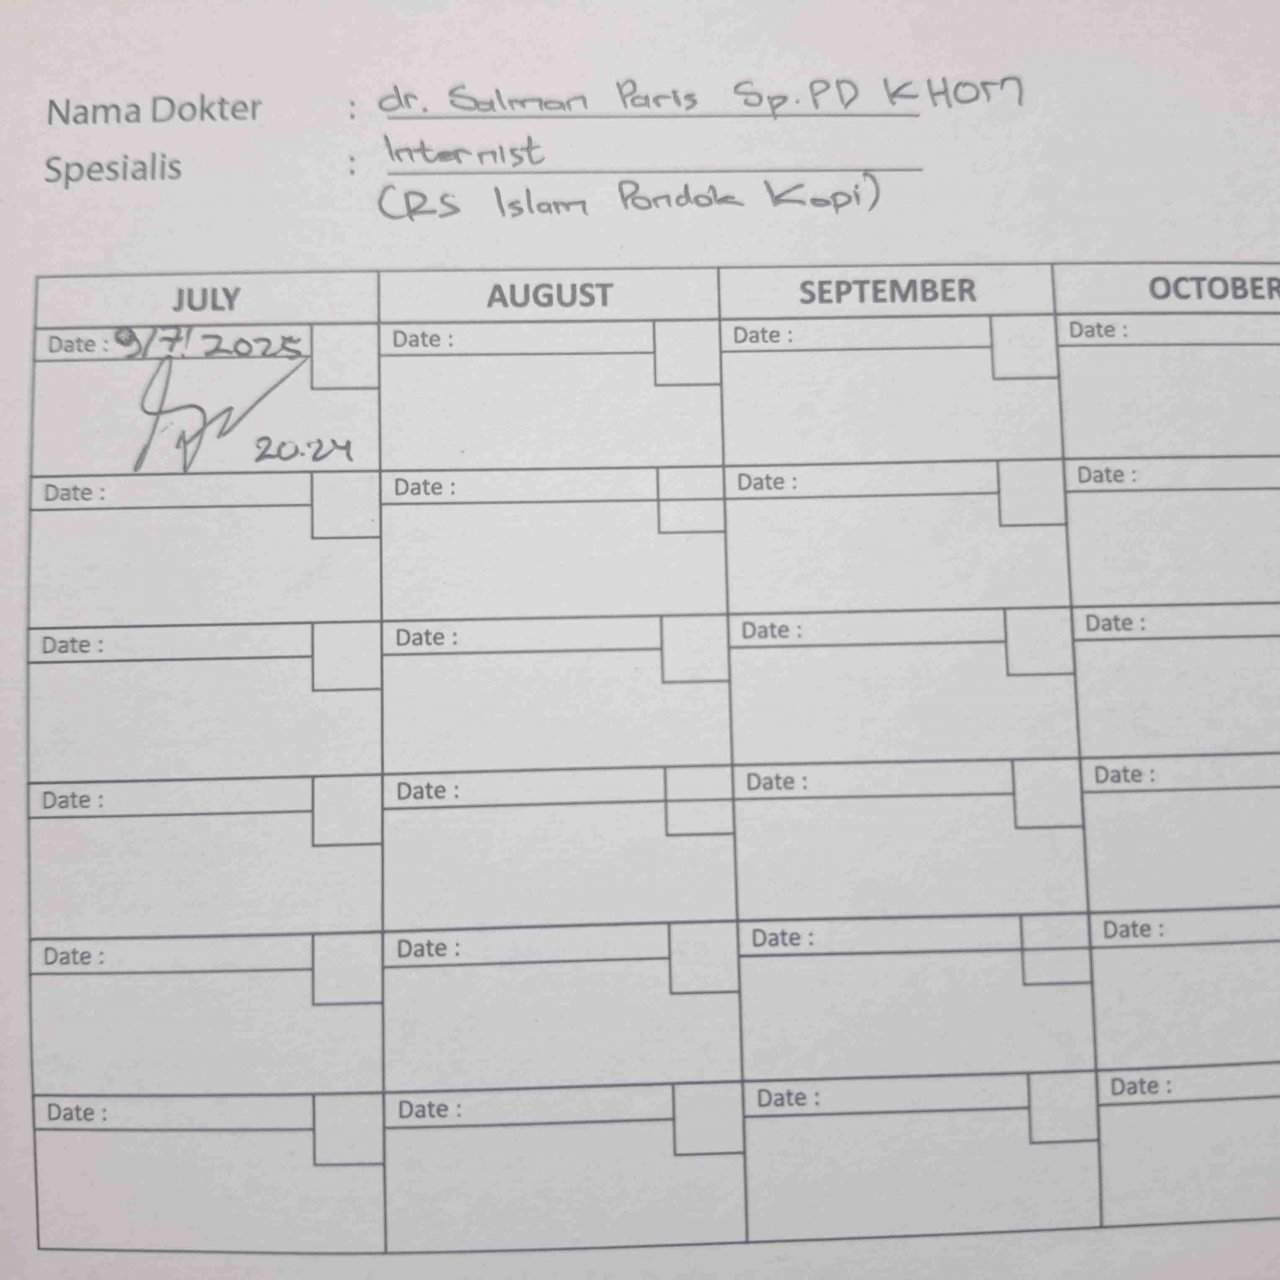 Nama Dokter : dr. Salman Paris Sp.PD KHOM
Spesialis : Internist
(RS Islam Pondok Kopi)
JULY AUGUST SEPTEMBER OCTOBER
Date : 9/7/2025 Date : Date : Date :
20.24
Date : Date : Date : Date :
Date : Date : Date : Date :
Date : Date : Date : Date :
Date : Date : Date : Date :
Date : Date : Date : Date :